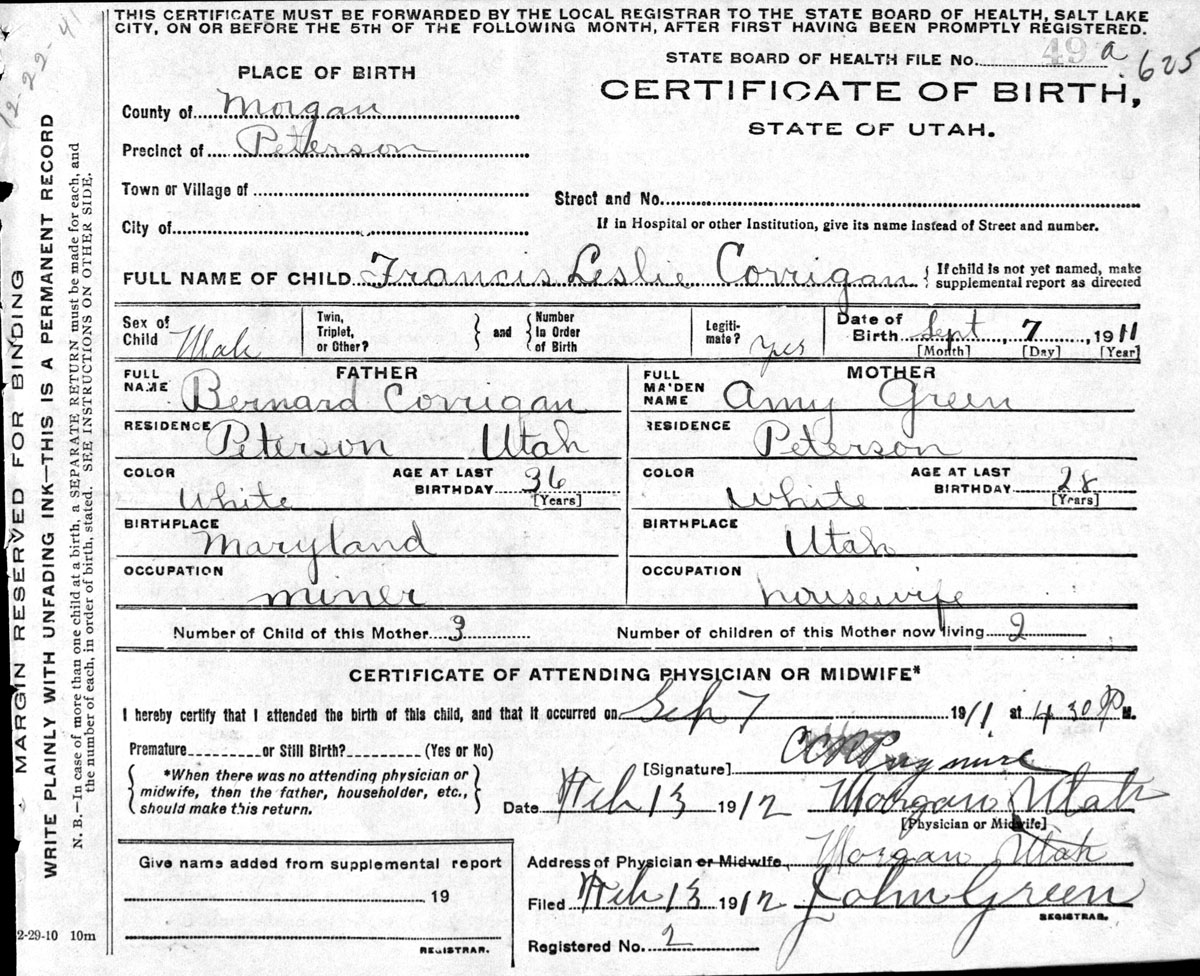 THIS CERTIFICATE MUST BE FORWARDED BY THE LOCAL REGISTRAR TO THE STATE BOARD OF HEALTH, SALT LAKE
CITY, ON OR BEFORE THE 5TH OF THE FOLLOWING MONTH, AFTER FIRST HAVING BEEN PROMPTLY REGISTERED.
12-22-41
STATE BOARD OF HEALTH FILE No. 49 a. 625
PLACE OF BIRTH
CERTIFICATE OF BIRTH,
STATE OF UTAH.
County of Morgan
Precinct of Peterson
Town or Village of
Street and No.
City of
If in Hospital or other Institution, give its name instead of Street and number.
FULL NAME OF CHILD Francis Leslie Corrigan { If child is not yet named, make
supplemental report as directed
Sex of Child Male Twin, Triplet, or Other? } and { Number in Order of Birth Legiti-mate? yes Date of Birth Sept, 7, 1911
[Month] [Day] [Year]
FATHER MOTHER
FULL NAME Bernard Corrigan FULL MAIDEN NAME Amy Green
RESIDENCE Peterson Utah RESIDENCE Peterson
COLOR White AGE AT LAST BIRTHDAY 36 [Years] COLOR White AGE AT LAST BIRTHDAY 28 [Years]
BIRTHPLACE Maryland BIRTHPLACE Utah
OCCUPATION miner OCCUPATION housewife
Number of Child of this Mother 3 Number of children of this Mother now living 2
CERTIFICATE OF ATTENDING PHYSICIAN OR MIDWIFE*
I hereby certify that I attended the birth of this child, and that it occurred on Sep 7 1911 at 4 30 P M.
Premature or Still Birth? (Yes or No)
[Signature]
{ *When there was no attending physician or
midwife, then the father, householder, etc.,
should make this return. }
Date Feb 13 1912 Morgan Utah
[Physician or Midwife]
Give name added from supplemental report
19
REGISTRAR.
Address of Physician or Midwife, Morgan Utah
Filed Feb 13 1912 John Green
REGISTRAR.
Registered No. 2
2-29-10 10m
MARGIN RESERVED FOR BINDING
WRITE PLAINLY WITH UNFADING INK—THIS IS A PERMANENT RECORD
N. B.—In case of more than one child at a birth, a SEPARATE RETURN must be made for each, and
the number of each, in order of birth, stated. SEE INSTRUCTIONS ON OTHER SIDE.